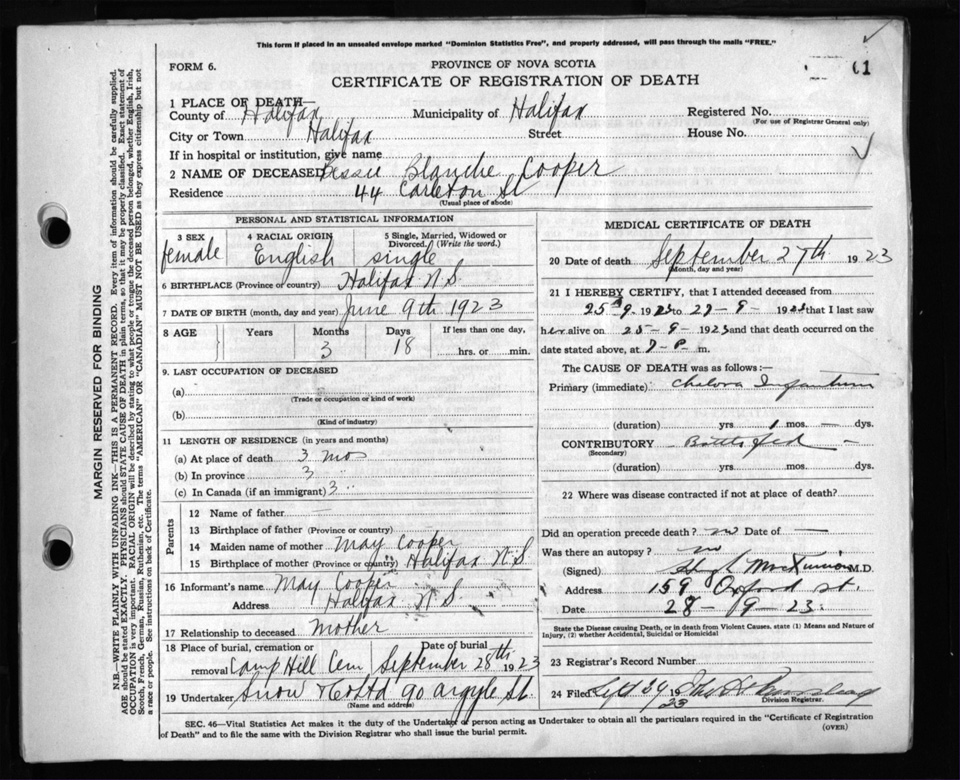 This form if placed in an unsealed envelope marked "Dominion Statistics Free", and properly addressed, will pass through the mails "FREE."
FORM 6.
PROVINCE OF NOVA SCOTIA
CERTIFICATE OF REGISTRATION OF DEATH
1 PLACE OF DEATH—
County of Halifax Municipality of Halifax Registered No.
(For use of Registrar General only)
City or Town Halifax Street House No.
If in hospital or institution, give name
2 NAME OF DECEASED Bessie Blanche Cooper
Residence 44 Carleton St
(Usual place of abode)
PERSONAL AND STATISTICAL INFORMATION
3 SEX 4 RACIAL ORIGIN 5 Single, Married, Widowed or Divorced. (Write the word.)
female English single
6 BIRTHPLACE (Province or country) Halifax N.S.
7 DATE OF BIRTH (month, day and year) June 9th 1923
8 AGE Years Months Days If less than one day,
3 18 hrs. or min.
9. LAST OCCUPATION OF DECEASED
(a)
(Trade or occupation or kind of work)
(b)
(Kind of industry)
11 LENGTH OF RESIDENCE (in years and months)
(a) At place of death 3 mos
(b) In province 3 "
(c) In Canada (if an immigrant) 3 "
Parents
12 Name of father —
13 Birthplace of father (Province or country)
14 Maiden name of mother May Cooper
15 Birthplace of mother (Province or country) Halifax N.S.
16 Informant's name May Cooper
Address Halifax N S
17 Relationship to deceased mother
18 Place of burial, cremation or Date of burial
removal Camp Hill Cem September 28th 1923
19 Undertaker Snow & Co Ltd 90 Argyle St.
(Name and address)
MEDICAL CERTIFICATE OF DEATH
20 Date of death September 27th 1923
(Month, day and year)
21 I HEREBY CERTIFY, that I attended deceased from
25-9-1923 to 27-9-1923 that I last saw
her alive on 25-9-1923 and that death occurred on
date stated above, at m.
The CAUSE OF DEATH was as follows:—
Primary (immediate) Cholera Infantum
(duration) yrs 1 mos. — dys.
CONTRIBUTORY Bottle fed —
(Secondary)
(duration) yrs. mos. dys.
22 Where was disease contracted if not at place of death?
Did an operation precede death? no Date of —
Was there an autopsy? no
(Signed) M.D.
Address 159 Oxford St.
Date 28-9-23.
State the Disease causing Death, or in death from Violent Causes, state (1) Means and Nature of
Injury, (2) whether Accidental, Suicidal or Homicidal
23 Registrar's Record Number
24 Filed Sept 1923
Division Registrar.
SEC. 46—Vital Statistics Act makes it the duty of the Undertaker or person acting as Undertaker to obtain all the particulars required in the "Certificate of Registration
of Death" and to file the same with the Division Registrar who shall issue the burial permit.
(OVER)
MARGIN RESERVED FOR BINDING
N.B.—WRITE PLAINLY WITH UNFADING INK—THIS IS A PERMANENT RECORD. Every item of information should be carefully supplied.
AGE should be stated EXACTLY. PHYSICIANS should STATE CAUSE OF DEATH in plain terms, so that it may be properly classified. Exact statement of
OCCUPATION is very important. RACIAL ORIGIN will be described by stating to what people or tongue the deceased person belonged, whether English, Irish,
Scotch, French, German, Russian, Ruthenian, etc. The terms "AMERICAN" OR "CANADIAN" MUST NOT BE USED as they express citizenship but not
a race or people. See instructions on back of Certificate.